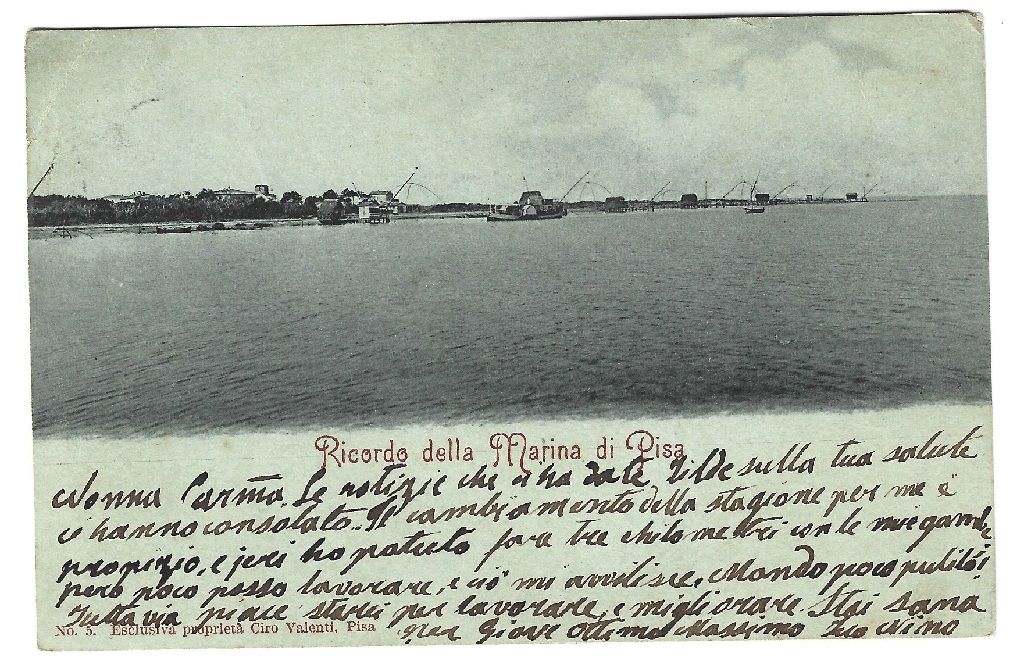 Ricordo della Marina di Pisa
Nonna Carma. Le notizie che ci ha date Tilde sulla tua salute
ci hanno consolato. Il cambiamento della stagione per me è
propizio, e jeri ho potuto fare tre chilometri con le mie gambe
però poco posso lavorare, e ciò mi avvilisce. Mondo poco pulito!
Tuttavia piace starci per lavorare, e migliorare. Stai sana
Giove Ottimo Massimo Tuo Nino
No. 5. Esclusiva proprietà Ciro Valenti, Pisa